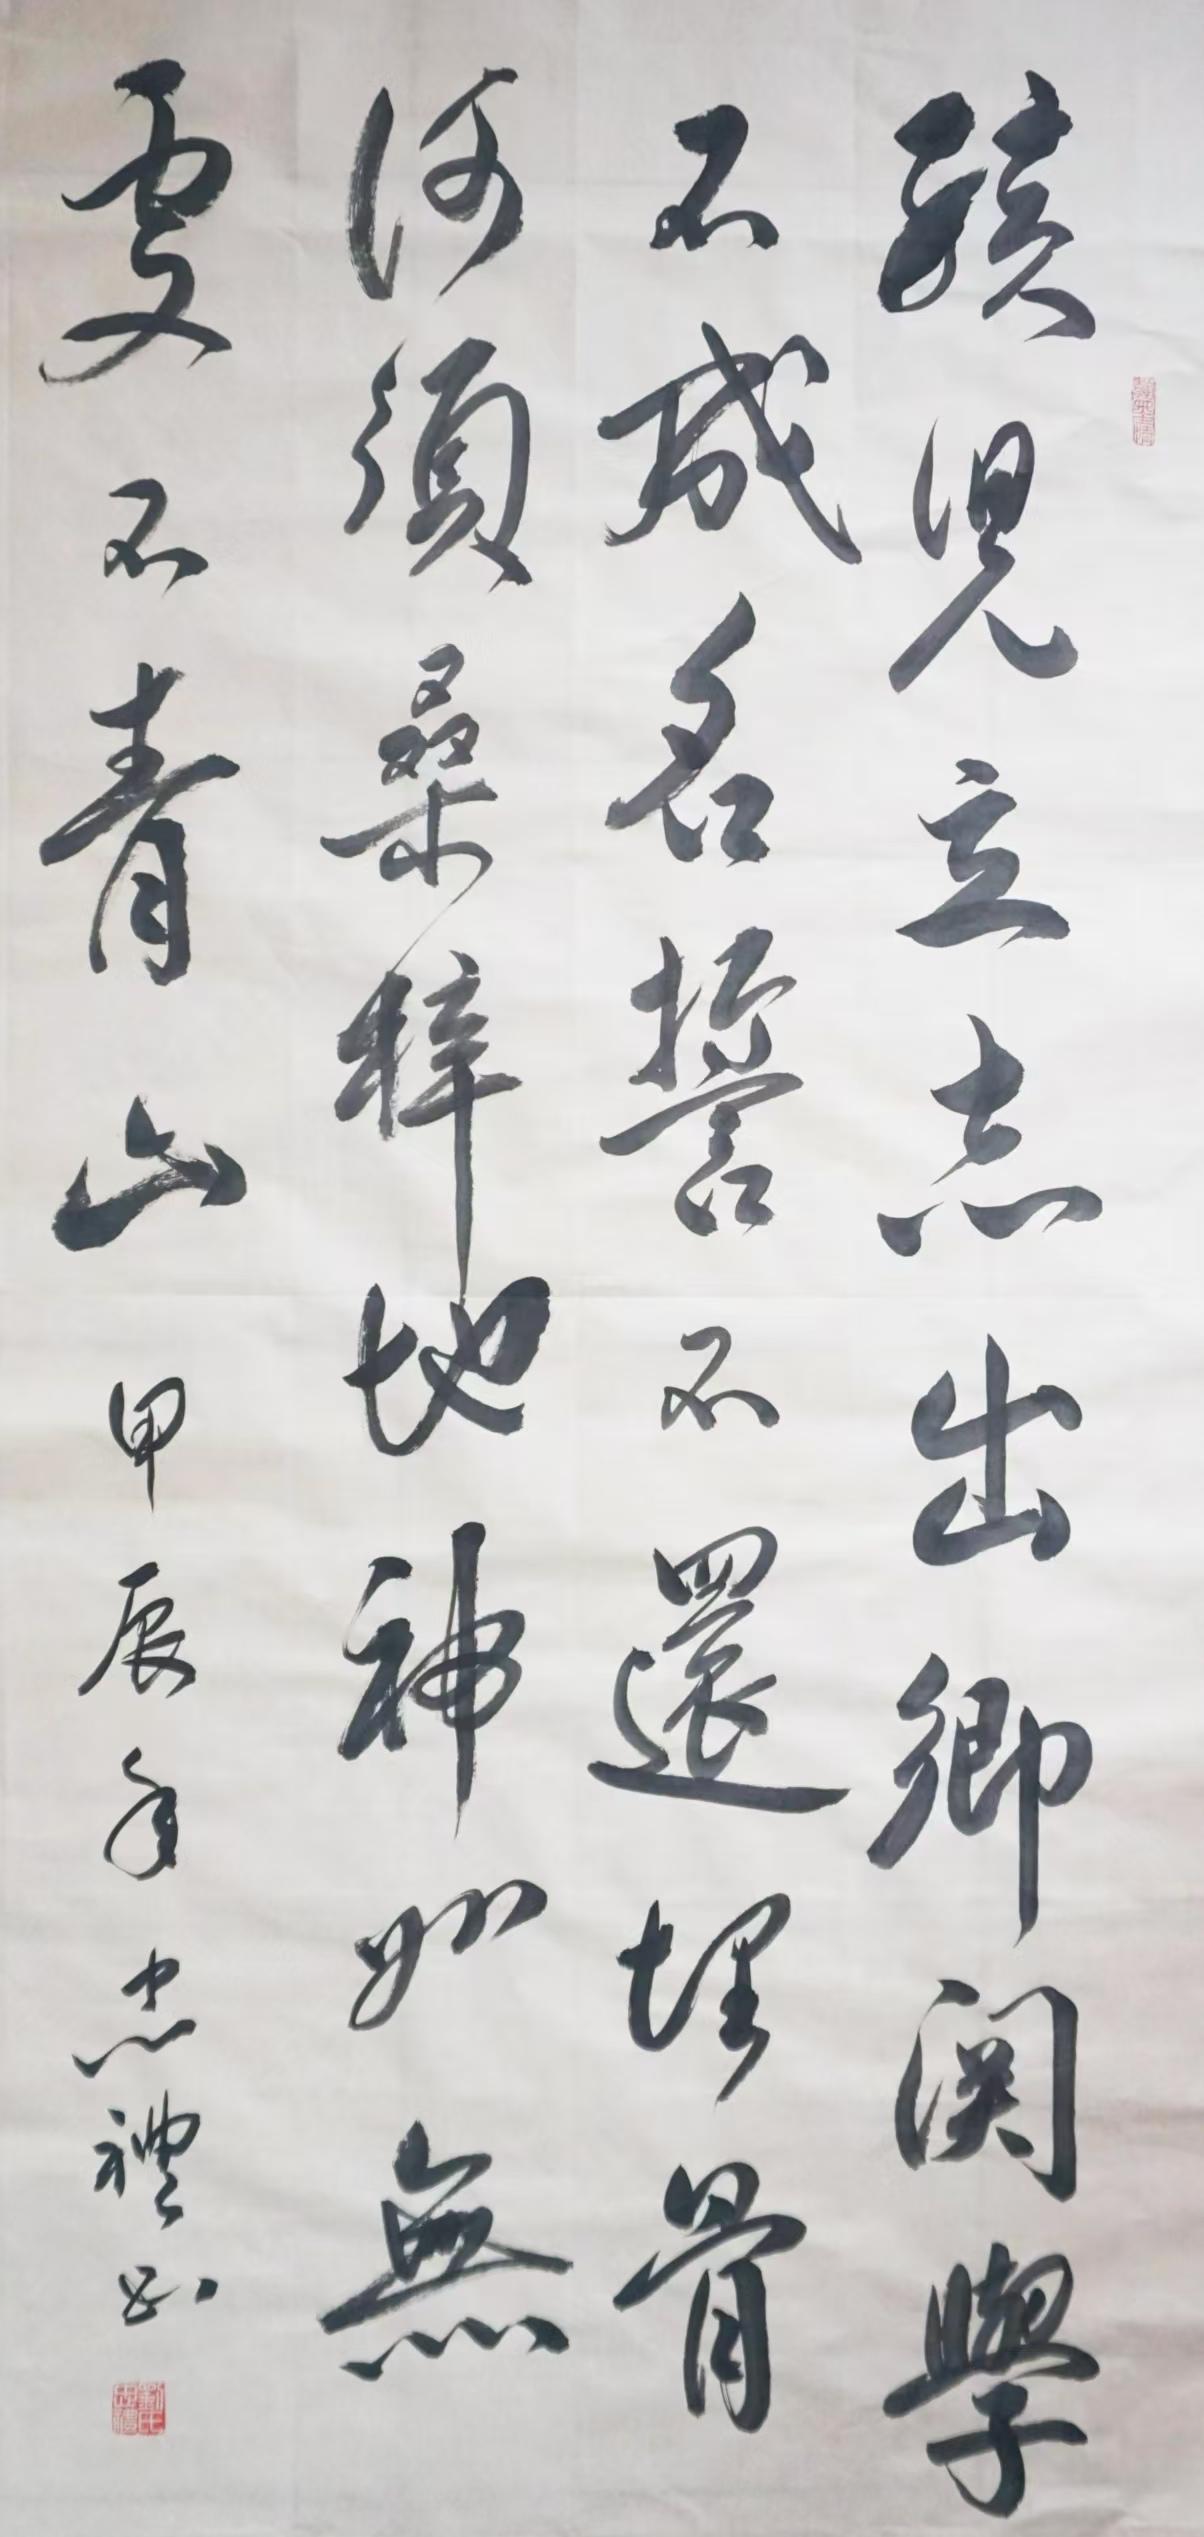 孩兒立志出鄉関學
不成名誓不還埋骨
何須桑梓地神州無
處不青山 甲辰年忠禮
劉氏忠禮